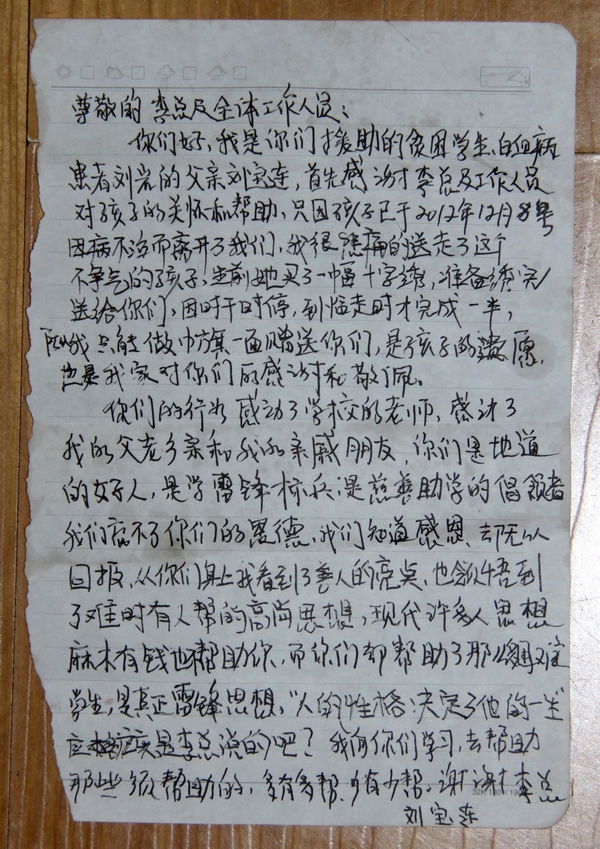 尊敬的李总及全体工作人员：
你们好，我是你们援助的贫困学生、白血病
患者刘岩的父亲刘宝连，首先感谢李总及工作人员
对孩子的关怀和帮助，只因孩子已于2012年12月8号
因病不治而离开了我们，我很悲痛的送走了这个
不争气的孩子，生前她买了一幅十字绣，准备绣完
送给你们，因时干时停，到临走时才完成一半，
所以我只能做巾旗一面赠送你们，是孩子的遗愿，
也是我家对你们的感谢和敬佩。
你们的行为感动了学校的老师，感动了
我的父老乡亲和我的亲戚朋友，你们是地道
的好人，是学雷锋标兵，是慈善助学的倡领者
我们忘不了你们的恩德，我们知道感恩，却无以
回报，从你们身上我看到了善人的亮点，也领悟到
了难时有人帮的高尚思想，现代许多人思想
麻木有钱也帮助你，而你们却帮助了那么困难
学生，是真正雷锋思想，"人的性格决定了他的一生"
应该是李总说的吧？我向你们学习，去帮助
那些须帮助的，多有多帮，少有少帮。谢谢李总
刘宝连